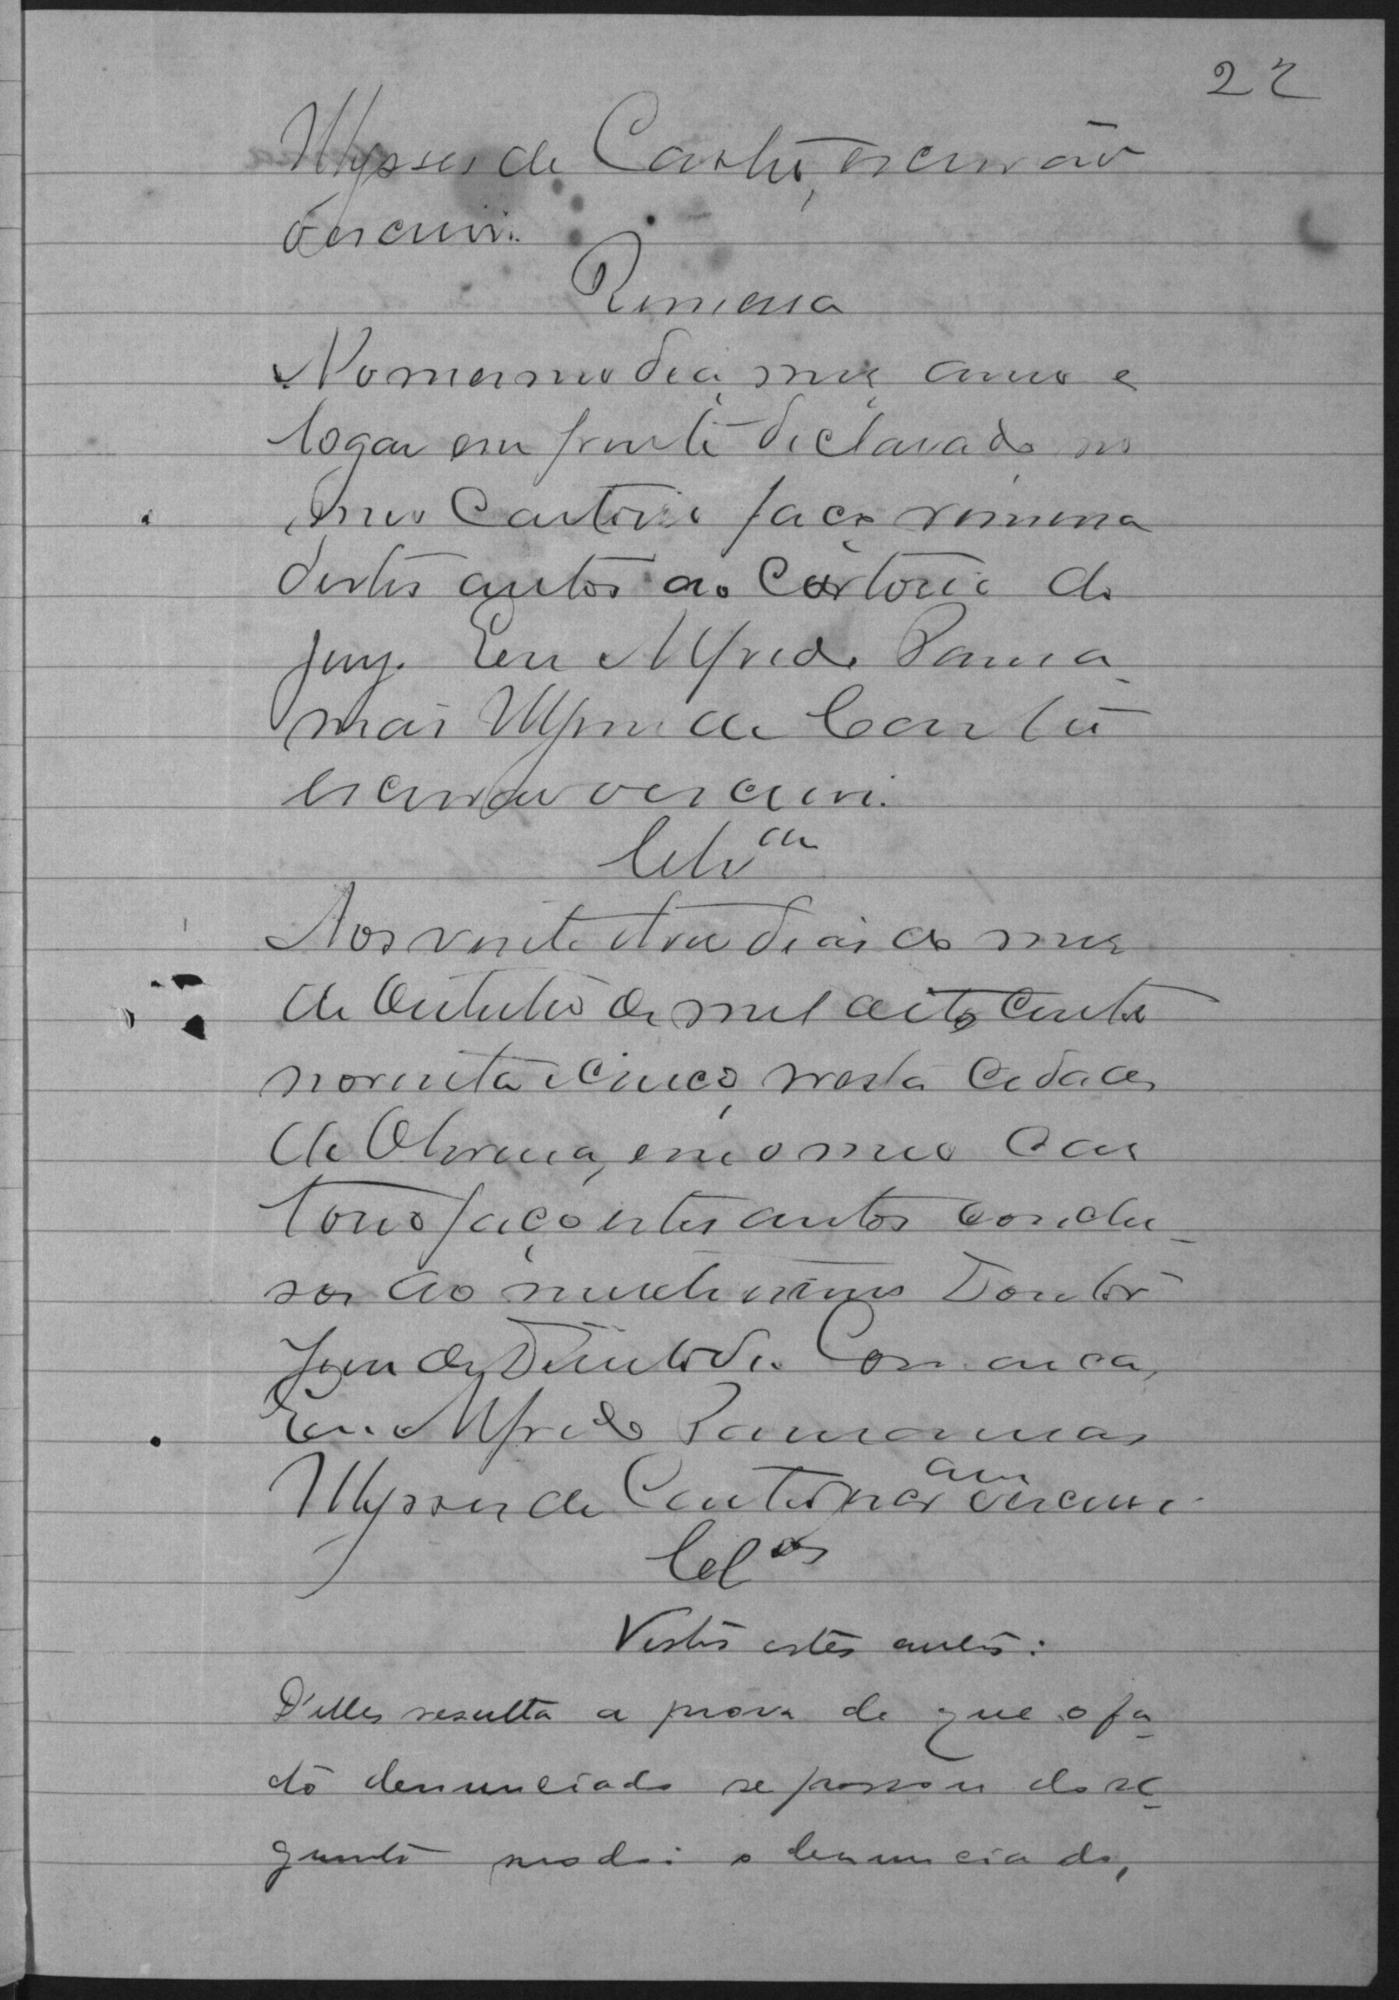 22
Ulysses de Castro, escrivão
o escrevi.
Remessa
No mesmo dia, mez, anno e
logar em frente declarado no
meu Cartorio faço remessa
destes autos ao Cartorio do
jury. Eu Alfredo Parana
mas Ulysses de Castro
escrivão o escrevi.
Clsam
Aos vinte tres dias do mez
de Outubro de mil oito centos
noventa e cinco, nesta Cidade
de Oliveira, em o meu Car
torio faço estes autos conclu-
sos ao meritissimo Doutor
Juiz de Direito da Comarca,
Eu Alfredo Paranamas
Ulysses de Castro escrivam o escrevi.
Clos
Vistos estes autos:
D'elles resulta a prova de que o fa-
cto denunciado se passou do se-
guinte modo: o denunciado,